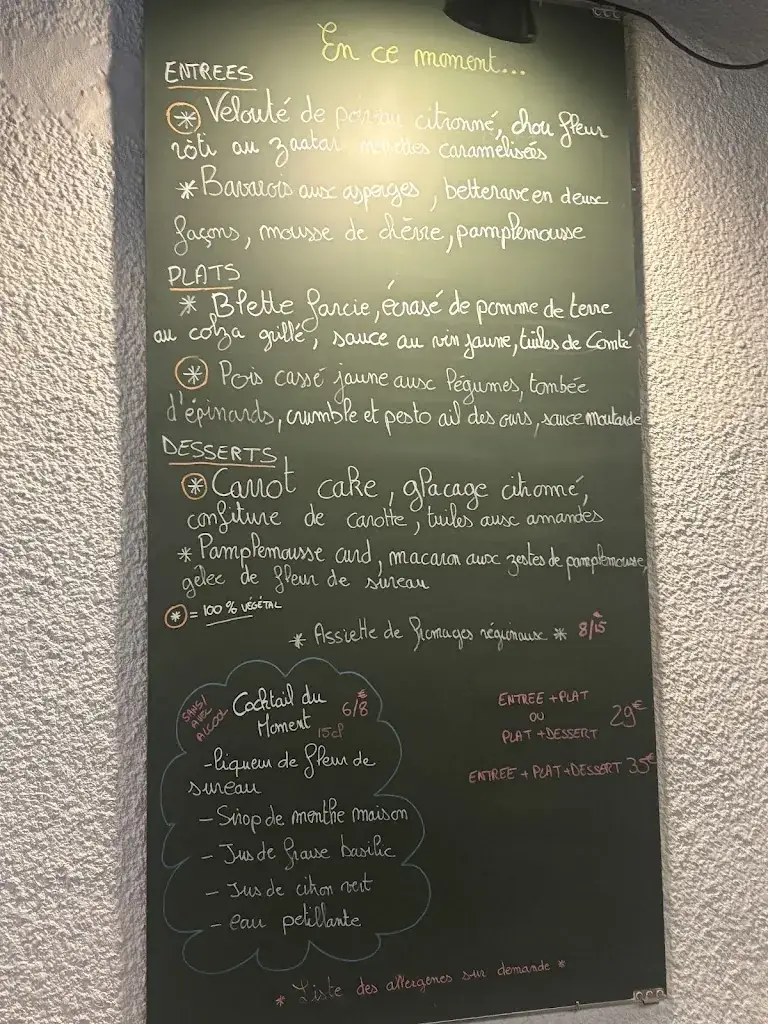 En ce moment...
ENTREES
* Velouté de poireau citronné, chou fleur
rôti au zaatar noisettes caramélisées
* Bavarois aux asperges, betterave en deux
façons, mousse de chèvre, pamplemousse
PLATS
* Blette farcie, écrasé de pomme de terre
au colza grillé, sauce au vin jaune, tuiles de Comté
* Pois cassé jaune aux légumes, tombée
d'épinards, crumble et pesto ail des ours, sauce moutarde
DESSERTS
* Carrot cake, glaçage citronné,
confiture de carotte, tuiles aux amandes
* Pamplemousse curd, macaron aux zestes de pamplemousse,
gelée de fleur de sureau
* = 100% VÉGÉTAL
* Assiette de fromages régionaux * 8/15
SANS/
AVEC
ALCOOL
Cocktail du
Moment
6/8€
15cl
- liqueur de fleur de
sureau
- Sirop de menthe maison
- Jus de fraise basilic
- Jus de citron vert
- eau petillante
ENTREE + PLAT
OU
PLAT + DESSERT
29€
ENTREE + PLAT + DESSERT 35€
* Liste des allergenes sur demande *